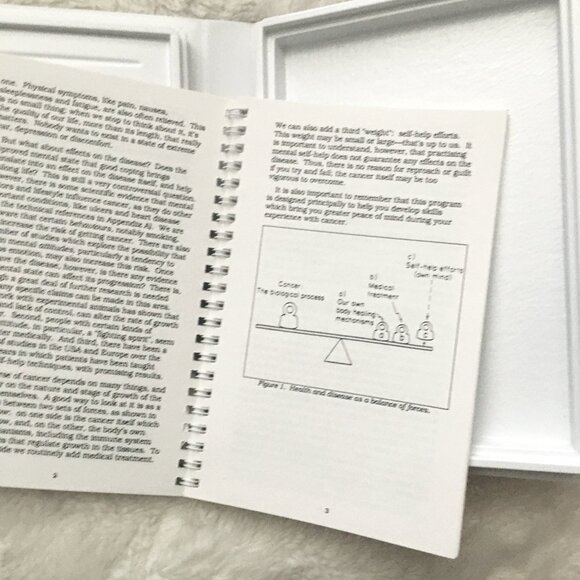 one. Physical symptoms, like pain, nausea,
sleeplessness and fatigue, are also often relieved. This
is no small thing; when we stop to think about it, it's
the quality of our life, more than its length, that really
matters. Nobody wants to exist in a state of extreme
depression or discomfort.
But what about effects on the disease? Does the
improved mental state that good coping brings
translate into an effect on the disease itself, and help
long life? This is still a very controversial question.
However, there is some scientific evidence that mental
and lifestyle influence cancer, as they do other
important conditions, like ulcers and heart disease
the technical references in Appendix A). We are
aware that certain behaviours, notably smoking,
increase the risk of getting cancer. There are also
number of studies which explore the possibility that
mental attitudes, particularly a tendency to
emotion, may also increase this risk. Once
have the disease, however, is there any evidence
mental state can affect its progression? There is,
a great deal of further research is needed
any specific claims can be made in this area.
work with experimental animals has shown that
and lack of control, can alter the rate of growth
Second, people with certain kinds of
attitude, in particular, a "fighting spirit", seem
medically. And third, there have been a
of studies in the USA and Europe over the
years in which patients have been taught
self-help techniques, with promising results.
of cancer depends on many things, and
on the nature and stage of growth of the
themselves. A good way to look at it is as a
between two sets of forces, as shown in
on one side is the cancer itself which
and, on the other, the body's own
mechanisms, including the immune system
that regulate growth in the tissues. To
we routinely add medical treatment.
2
We can also add a third "weight": self-help efforts.
This weight may be small or large—that's up to us. It
is important to understand, however, that practising
mental self-help does not guarantee any effects on the
disease. Thus, there is no reason for reproach or guilt
if you try and fail; the cancer itself may be too
vigorous to overcome.
It is also important to remember that this program
is designed principally to help you develop skills
which bring you greater peace of mind during your
experience with cancer.
Cancer
The biological process
a)
Our own
body healing
mechanisms
b)
Medical
treatment
c)
Self-help efforts
(own mind)
Figure 1. Health and disease as a balance of forces.
3